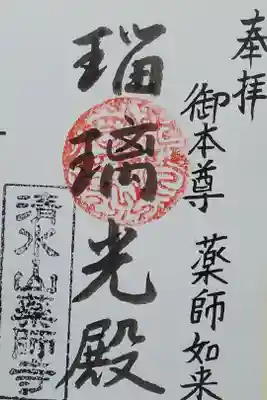 奉拝
御本尊 薬師如来
瑠璃光殿
清水山薬師寺